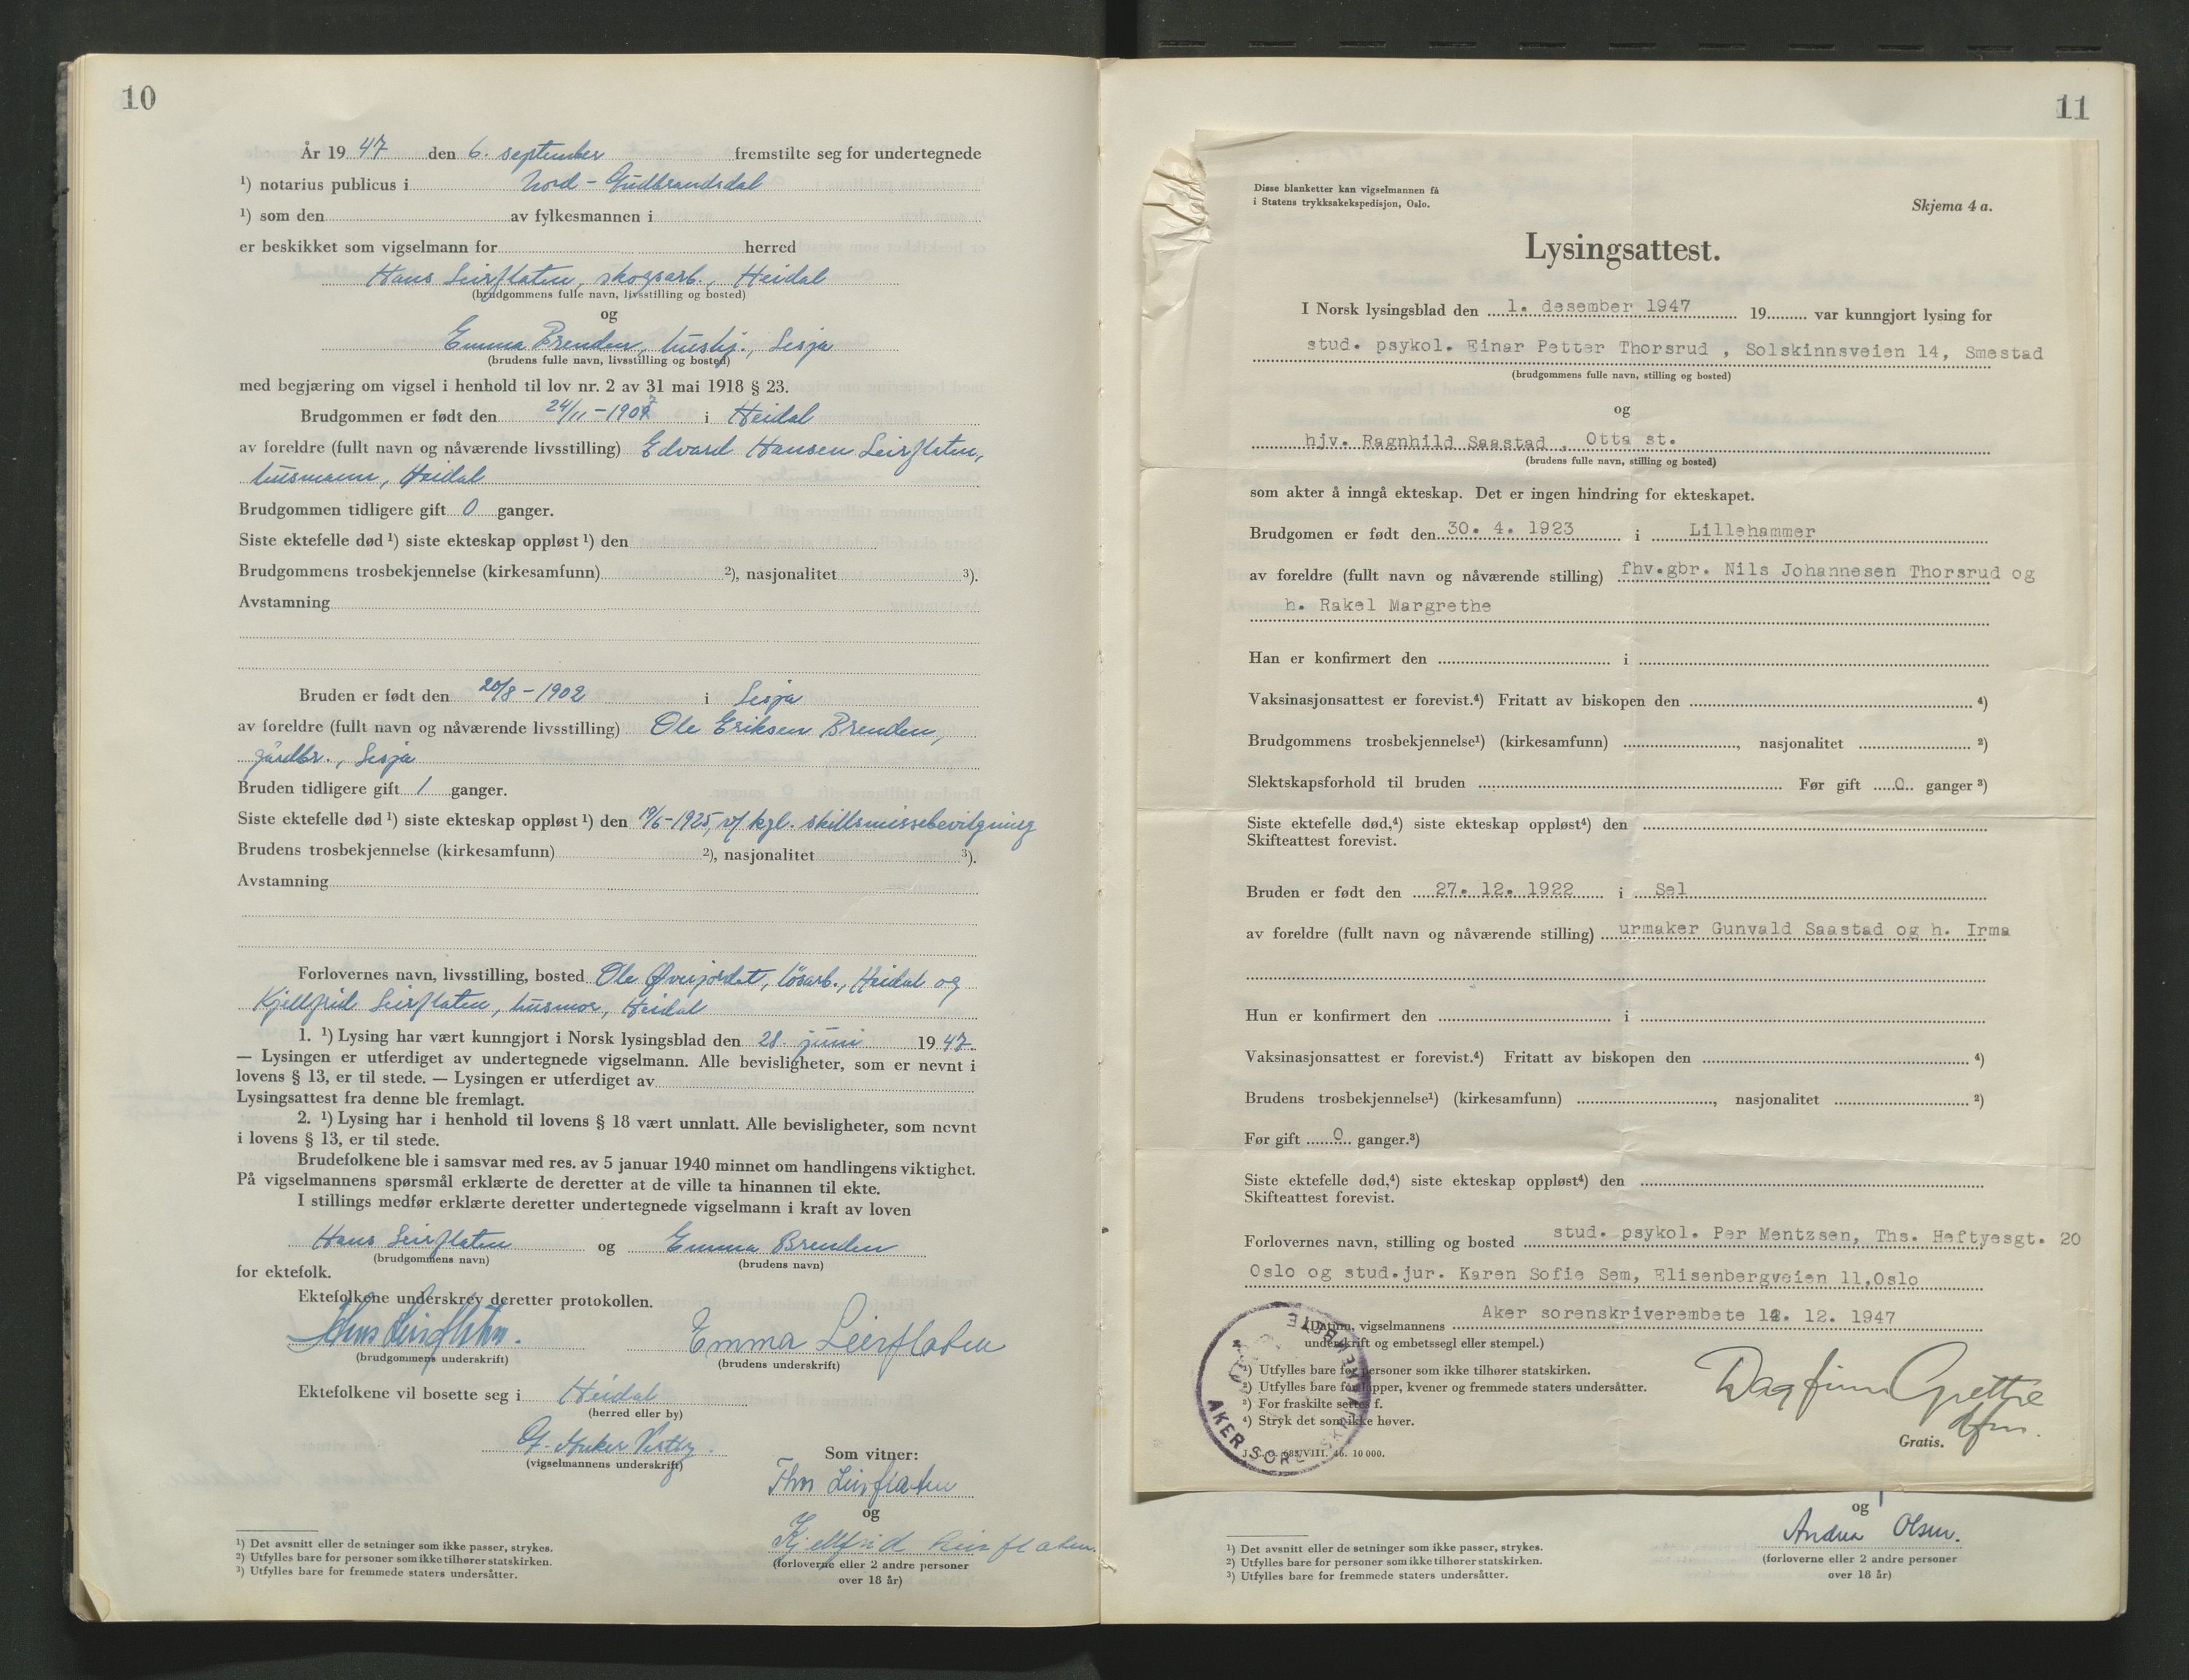 10
År 19 47 den 6. september fremstilte seg for undertegnede
¹) notarius publicus i Nord-Gudbrandsdal
¹) som den av fylkesmannen i
er beskikket som vigselmann for herred
Hans Leirflaten, skogsarb., Heidal
(brudgommens fulle navn, livsstilling og bosted)
og
Emma Brenden, hushj., Lesja
(brudens fulle navn, livsstilling og bosted)
med begjæring om vigsel i henhold til lov nr. 2 av 31 mai 1918 § 23.
Brudgommen er født den 24/11-1907 i Heidal
av foreldre (fullt navn og nåværende livsstilling) Edvard Hansen Leirflaten,
husmann, Heidal
Brudgommen tidligere gift 0 ganger.
Siste ektefelle død ¹) siste ekteskap oppløst ¹) den
Brudgommens trosbekjennelse (kirkesamfunn) ²), nasjonalitet ³).
Avstamning
Bruden er født den 20/8-1902 i Lesja
av foreldre (fullt navn og nåværende livsstilling) Ole Eriksen Brenden,
gårdbr., Lesja
Bruden tidligere gift 1 ganger.
Siste ektefelle død ¹) siste ekteskap oppløst ¹) den 19/6-1925, v/ kgl. skillsmissebevilgning
Brudens trosbekjennelse (kirkesamfunn) ²), nasjonalitet ³).
Avstamning
Forlovernes navn, livsstilling, bosted Ole Øverjordet, lösarb., Heidal og
Kjellfrid Leirflaten, husmor, Heidal
1. ¹) Lysing har vært kunngjort i Norsk lysingsblad den 28. juni 19 47.
— Lysingen er utferdiget av undertegnede vigselmann. Alle bevisligheter, som er nevnt i
lovens § 13, er til stede. — Lysingen er utferdiget av
Lysingsattest fra denne ble fremlagt.
2. ¹) Lysing har i henhold til lovens § 18 vært unnlatt. Alle bevisligheter, som nevnt
i lovens § 13, er til stede.
Brudefolkene ble i samsvar med res. av 5 januar 1940 minnet om handlingens viktighet.
På vigselmannens spørsmål erklærte de deretter at de ville ta hinannen til ekte.
I stillings medfør erklærte deretter undertegnede vigselmann i kraft av loven
Hans Leirflaten og Emma Brenden
(brudgommens navn) (brudens navn)
for ektefolk.
Ektefolkene underskrev deretter protokollen.
Hans Leirflaten. Emma Leirflaten
(brudgommens underskrift) (brudens underskrift)
Ektefolkene vil bosette seg i Heidal
(herred eller by)
(vigselmannens underskrift)
Som vitner:
Thor Leirflaten
og
Kjellfrid Leirflaten.
(forloverne eller 2 andre personer
over 18 år)
¹) Det avsnitt eller de setninger som ikke passer, strykes.
²) Utfylles bare for personer som ikke tilhører statskirken.
³) Utfylles bare for fremmede staters undersåtter.
11
Disse blanketter kan vigselmannen få
i Statens trykksakekspedisjon, Oslo.
Skjema 4 a.
Lysingsattest.
I Norsk lysingsblad den 1. desember 1947 19 var kunngjort lysing for
stud. psykol. Einar Petter Thorsrud , Solskinnsveien 14, Smestad
(brudgommens fulle navn, stilling og bosted)
og
hjv. Ragnhild Saastad , Otta st.
(brudens fulle navn, stilling og bosted)
som akter å inngå ekteskap. Det er ingen hindring for ekteskapet.
Brudgomen er født den 30. 4. 1923 i Lillehammer
av foreldre (fullt navn og nåværende stilling) fhv.gbr. Nils Johannesen Thorsrud og
h. Rakel Margrethe
Han er konfirmert den i
Vaksinasjonsattest er forevist.⁴) Fritatt av biskopen den ⁴)
Brudgommens trosbekjennelse¹) (kirkesamfunn) , nasjonalitet ²)
Slektskapsforhold til bruden Før gift 0 ganger ³)
Siste ektefelle død,⁴) siste ekteskap oppløst⁴) den
Skifteattest forevist.
Bruden er født den 27. 12. 1922 i Sel
av foreldre (fullt navn og nåværende stilling) urmaker Gunvald Saastad og h. Irma
Hun er konfirmert den i
Vaksinasjonsattest er forevist.⁴) Fritatt av biskopen den ⁴)
Brudens trosbekjennelse¹) (kirkesamfunn) , nasjonalitet ²)
Før gift 0 ganger.³)
Siste ektefelle død,⁴) siste ekteskap oppløst⁴) den
Skifteattest forevist.
Forlovernes navn, stilling og bosted stud. psykol. Per Mentzsen, Ths. Heftyesgt. 20
Oslo og stud.jur. Karen Sofie Sem, Elisenbergveien 11,Oslo
Aker sorenskriverembete 12. 12. 1947
(Datum, vigselmannens
underskrift og embetssegl eller stempel.)
¹) Utfylles bare for personer som ikke tilhører statskirken.
²) Utfylles bare for lapper, kvener og fremmede staters undersåtter.
³) For fraskilte settes f.
⁴) Stryk det som ikke høver.
Dagfinn Grette
dfm.
Gratis.
VIII. 46. 10 000.
AKER SORENSKRIVEREMBETE
og
Andrea Olsen.
(forloverne eller 2 andre personer
over 18 år)
¹) Det avsnitt eller de setninger som ikke passer, strykes.
²) Utfylles bare for personer som ikke tilhører statskirken.
³) Utfylles bare for fremmede staters undersåtter.